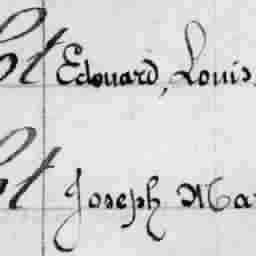 Edouard, Louis,
Joseph Ma